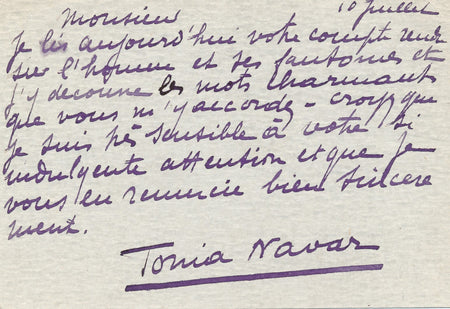 Monsieur 10 juillet
je lis aujourd'hui votre compte rendu
sur l'homme et ses fantomes et
j'y decouvre les mots charmants
que vous m'y accordez - croyez que
je suis très sensible à votre si
indulgente attention et que je
vous en remercie bien sincere
ment.
Tonia Navar